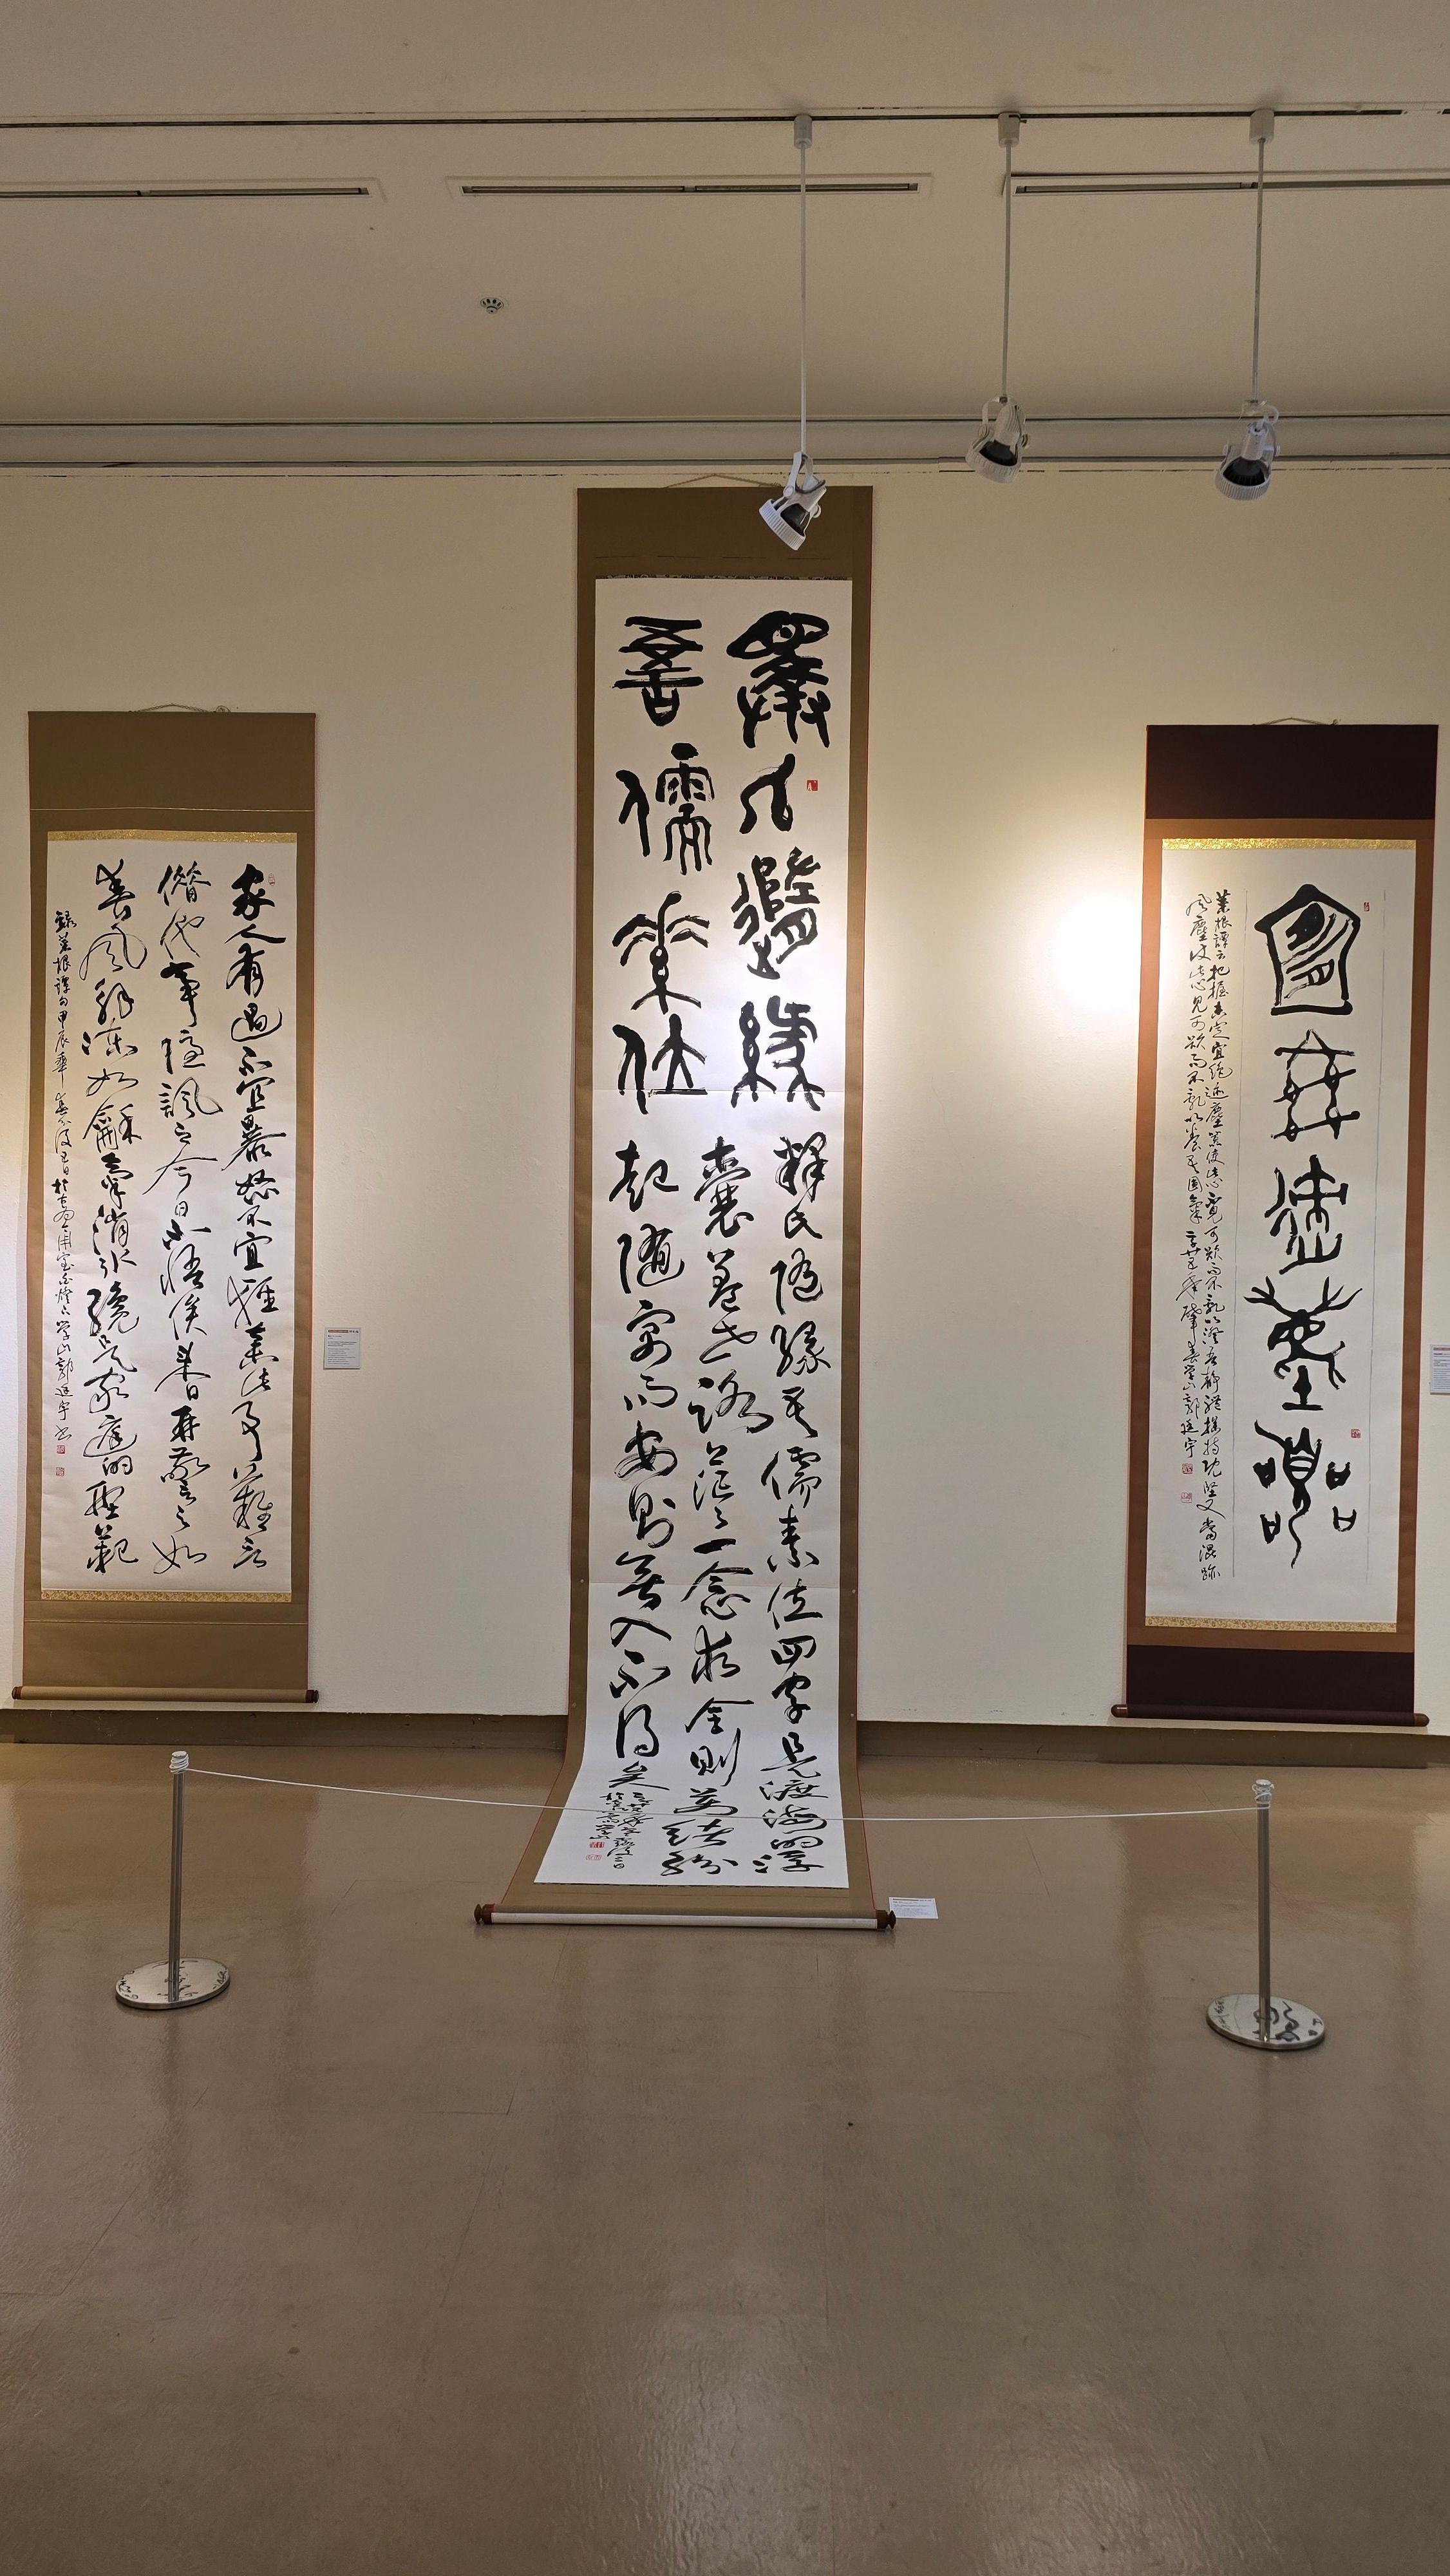 塵囂
菜根譚云把握未定宜絕迹塵囂使此心不見可欲而不亂以澄吾靜體操持既堅又當混跡
風塵使此心見可欲而不亂以養吾圓
學山郭廷宇
釋氏隨緣
吾儒素位
釋氏隨緣吾儒素位四字是渡海的浮
囊蓋世路茫茫一念求全則萬緒紛
起隨寓而安則無入不得矣
家人有過不宜暴怒不宜輕棄此事難言
借他事隱諷之今日不悟俟來日再警之如
春風解凍如龢氣消冰纔是家庭的型範
錄菜根譚句甲辰年
學山郭廷宇書